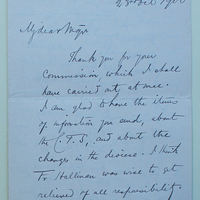 My dear Mgr
Thank you for your
commission, which I shall
have carried out, at once.
I am glad to have the items
of information you send, about
the C.T.S, and about the
changes in the diocese. I think
Fr Hallinan was wise to get
relieved of all responsibility.